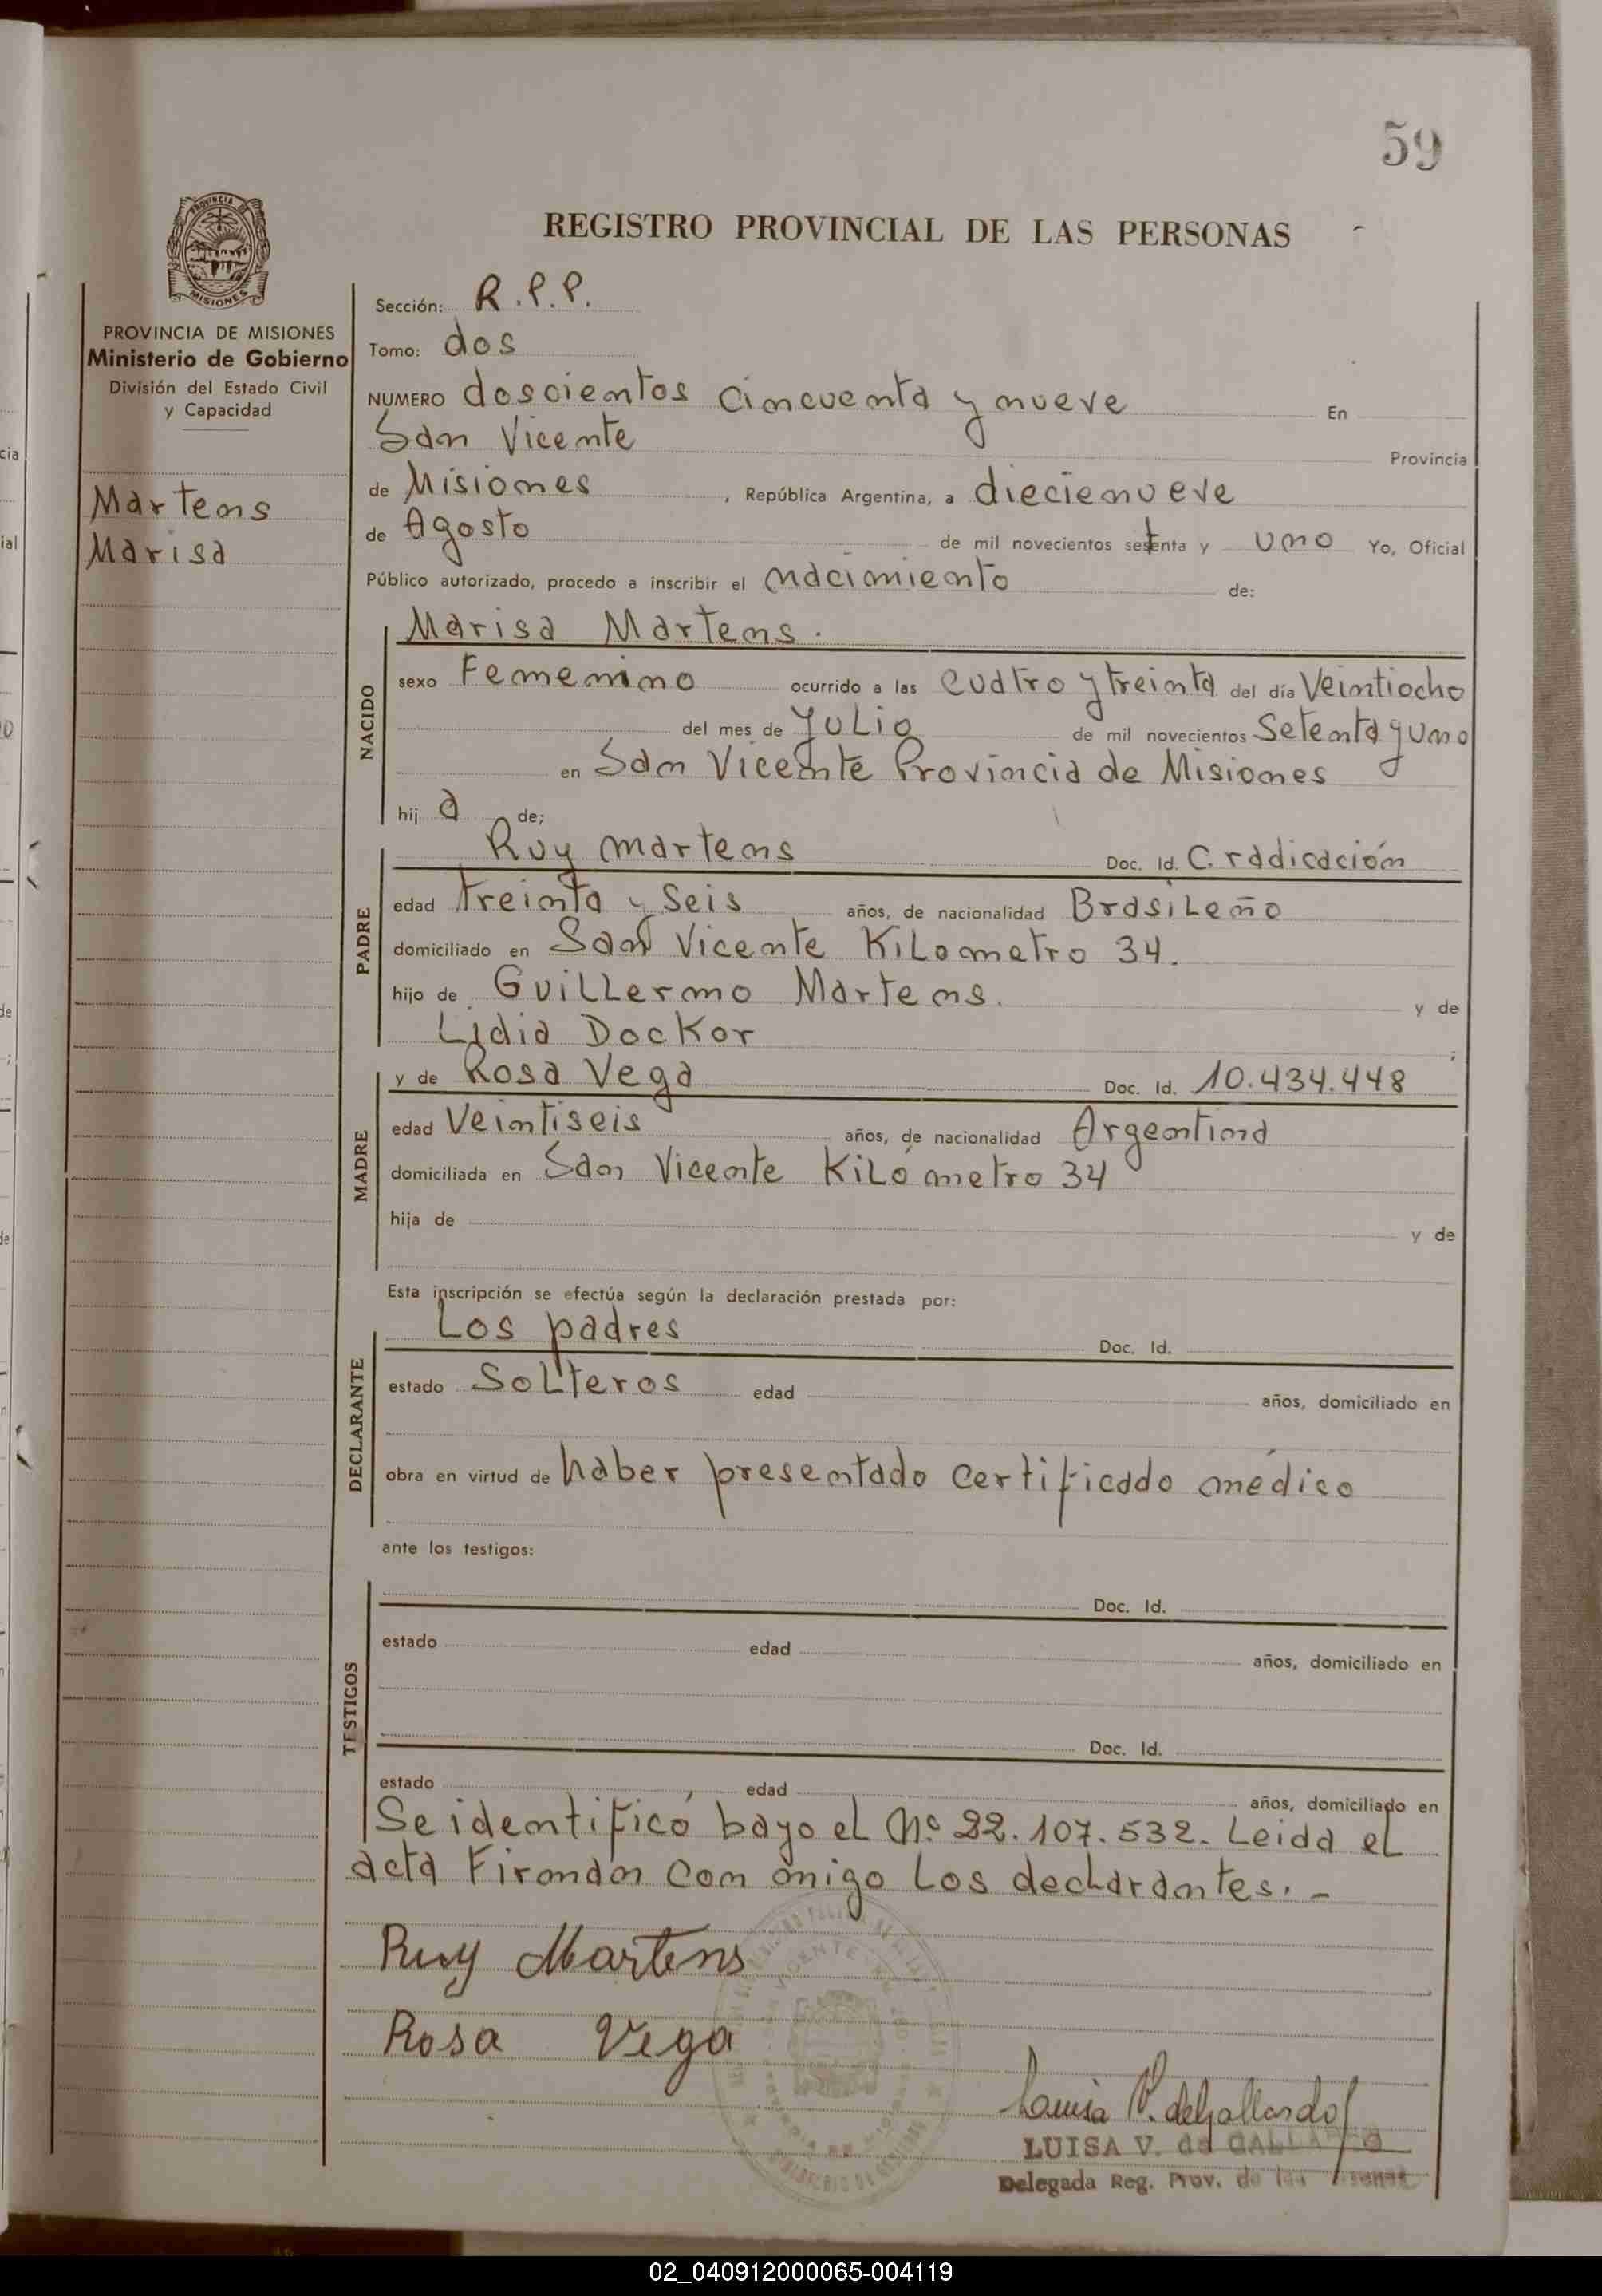 59
REGISTRO PROVINCIAL DE LAS PERSONAS
PROVINCIA DE MISIONES
Ministerio de Gobierno
División del Estado Civil
y Capacidad
Martens
Marisa
Sección: R.P.P.
Tomo: dos
NUMERO doscientos cincuenta y nueve En
San Vicente Provincia
de Misiones, República Argentina, a diecienueve
de Agosto de mil novecientos setenta y uno Yo, Oficial
Público autorizado, procedo a inscribir el nacimiento de:
NACIDO
Marisa Martens.
sexo Femenino ocurrido a las cuatro y treinta del día Veintiocho
del mes de Julio de mil novecientos Setenta y uno
en San Vicente Provincia de Misiones
hij a de;
PADRE
Ruy martens Doc. Id. C. radicación
edad treinta y seis años, de nacionalidad Brasileño
domiciliado en San Vicente Kilometro 34.
hijo de Guillermo Martens. y de
Lidia Dockor ;
MADRE
y de Rosa Vega Doc. Id. 10.434.448
edad Veintiseis años, de nacionalidad Argentina
domiciliada en San Vicente Kilómetro 34
hija de y de
Esta inscripción se efectúa según la declaración prestada por:
DECLARANTE
Los padres Doc. Id.
estado Solteros edad años, domiciliado en
obra en virtud de haber presentado certificado médico
ante los testigos:
TESTIGOS
Doc. Id.
estado edad años, domiciliado en
Doc. Id.
estado edad años, domiciliado en
Se identificó bayo el Nº 22.107.532. Leida el
acta Firman con migo Los declarantes. -
Ruy Martens
Rosa Vega
Luisa V. de Gallardo
LUISA V. de GALLARDO
Delegada Reg. Prov. de las
02_040912000065-004119